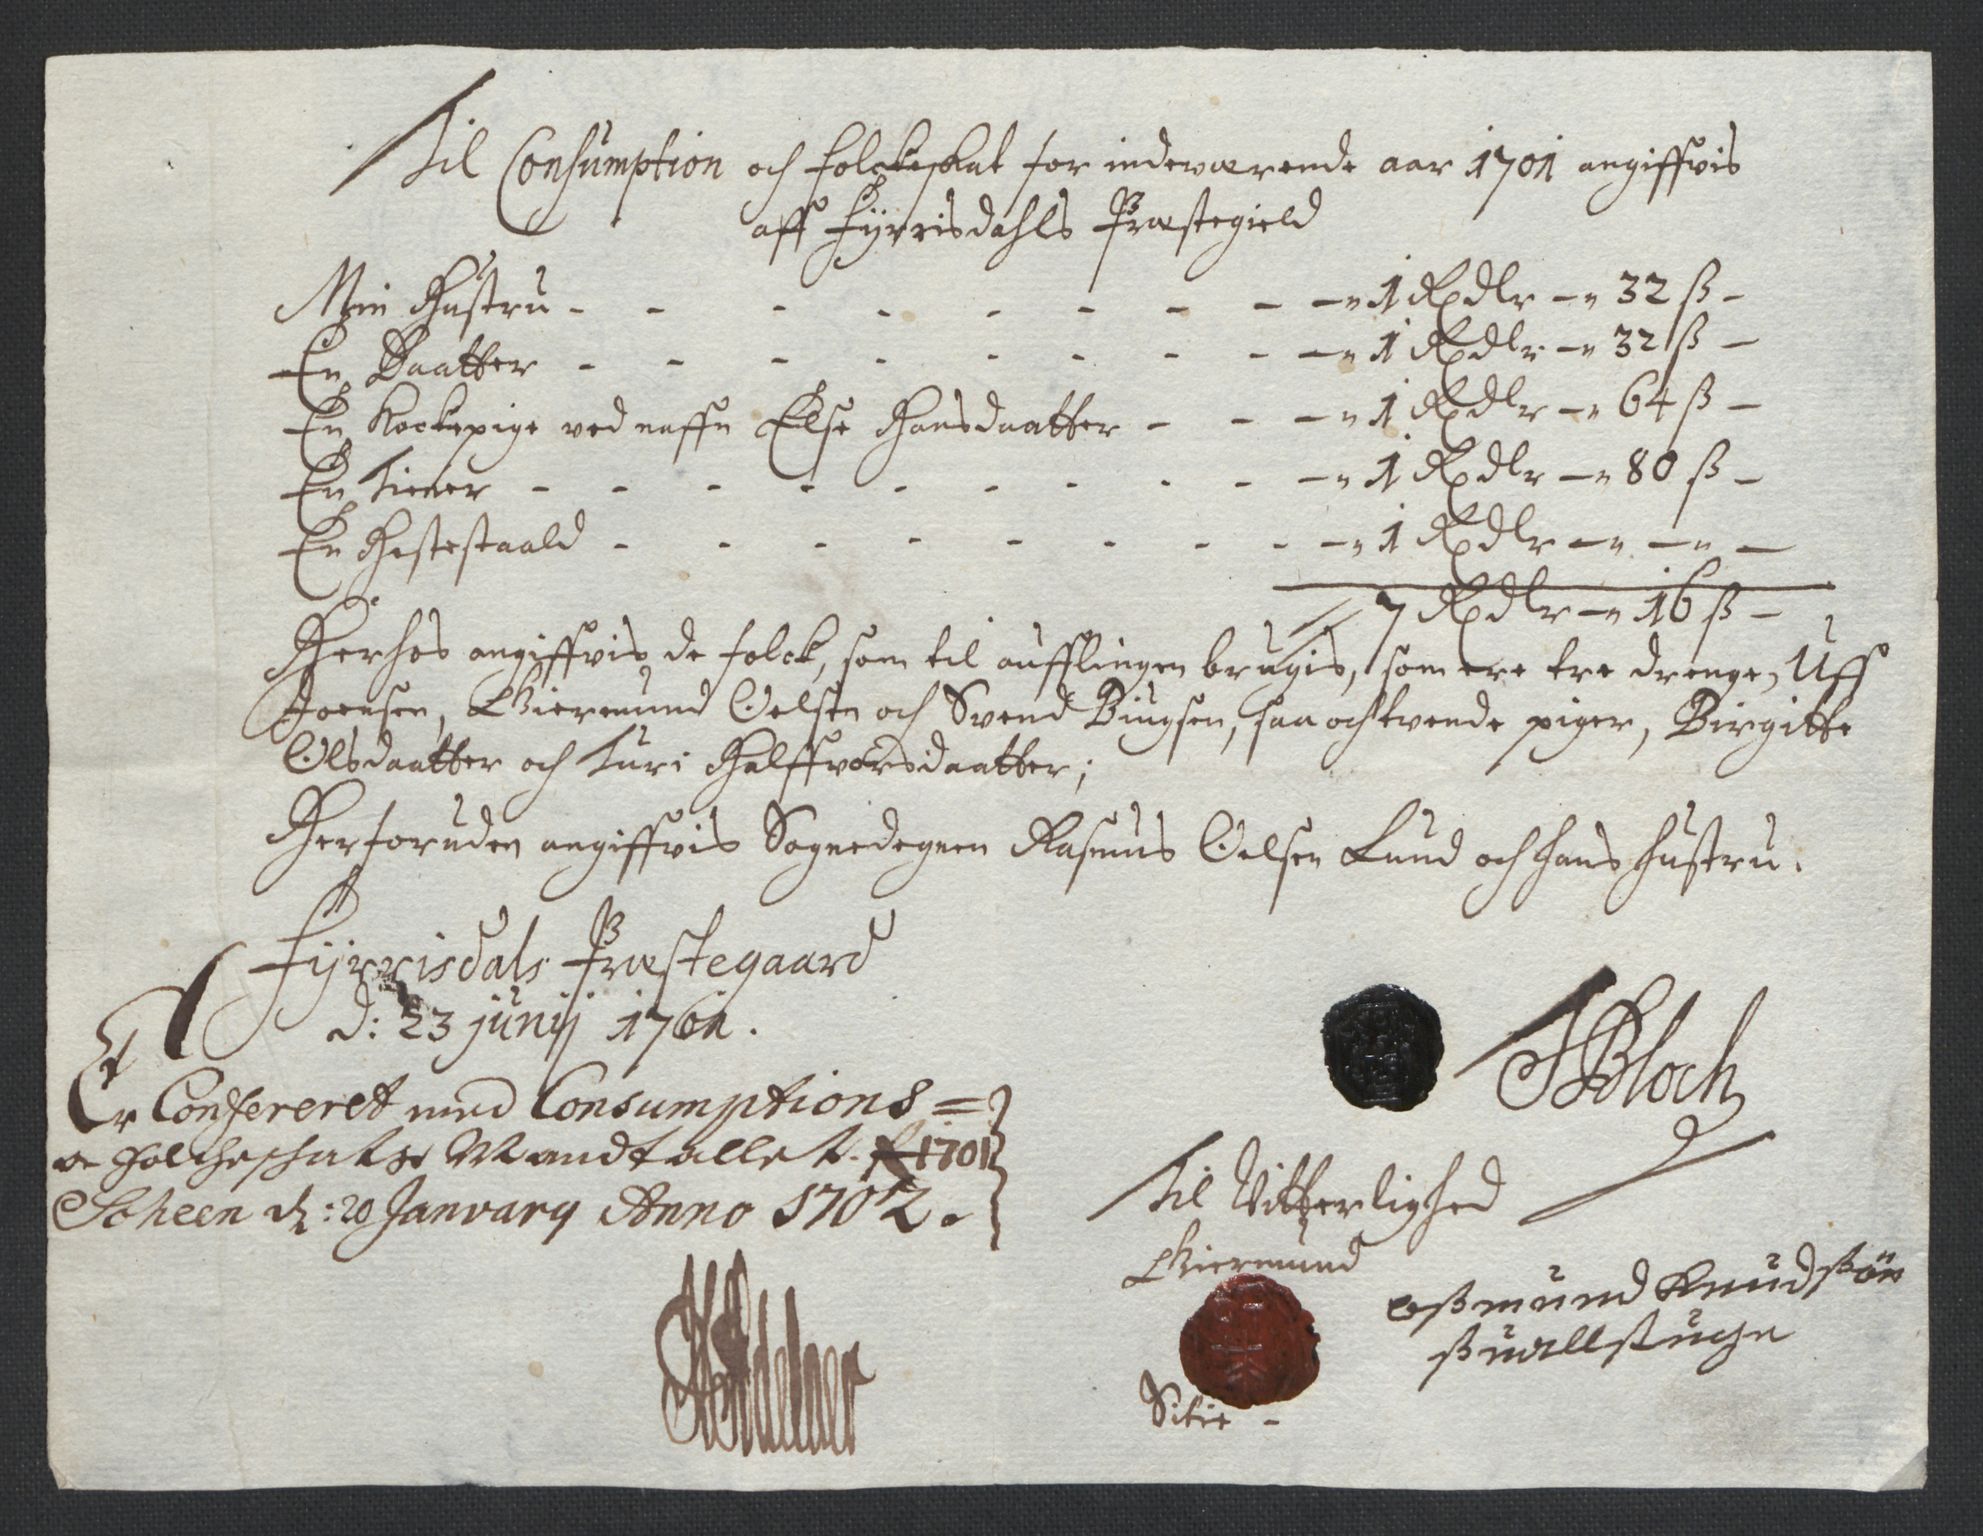 Til Consumption och folckeskat for indeværende aar 1701 angiffvis
aff Fyrrisdahls Præstegield
Min Hustru - - - - - - - - 1 Rdlr - 32 ß -
En Daatter - - - - - - - - 1 Rdlr - 32 ß -
En Kockepige ved naffn Else Hansdaatter - - - 1 Rdlr - 64 ß -
En Tiener - - - - - - - - - 1 Rdlr - 80 ß -
En Hestestaald - - - - - - - - - 1 Rdlr - - -
7 Rdlr - 16 ß -
Herhos angiffvis de folck, som til aufflingen brugis, som ere tre drenge, Uff
Joensen, Giermund Oelsen och Svend Biugsen, saa och tvende piger, Birgitte
Olsdaatter och Turi Halffvorsdaatter;
Herforuden angiffvis Sognedegnen Rasmus Oelsen Lund och hans hustru.
Fyrrisdals Præstegaard
d: 23 junij 1701.
Er Confereret med Consumptions=
oc Folcheschatz Mandtallet. f 1701
Scheen d: 20 January Anno 1702.
HBloch
Til Vitterlighed
Giermund
Aasmund Knudßøn
Sitie -